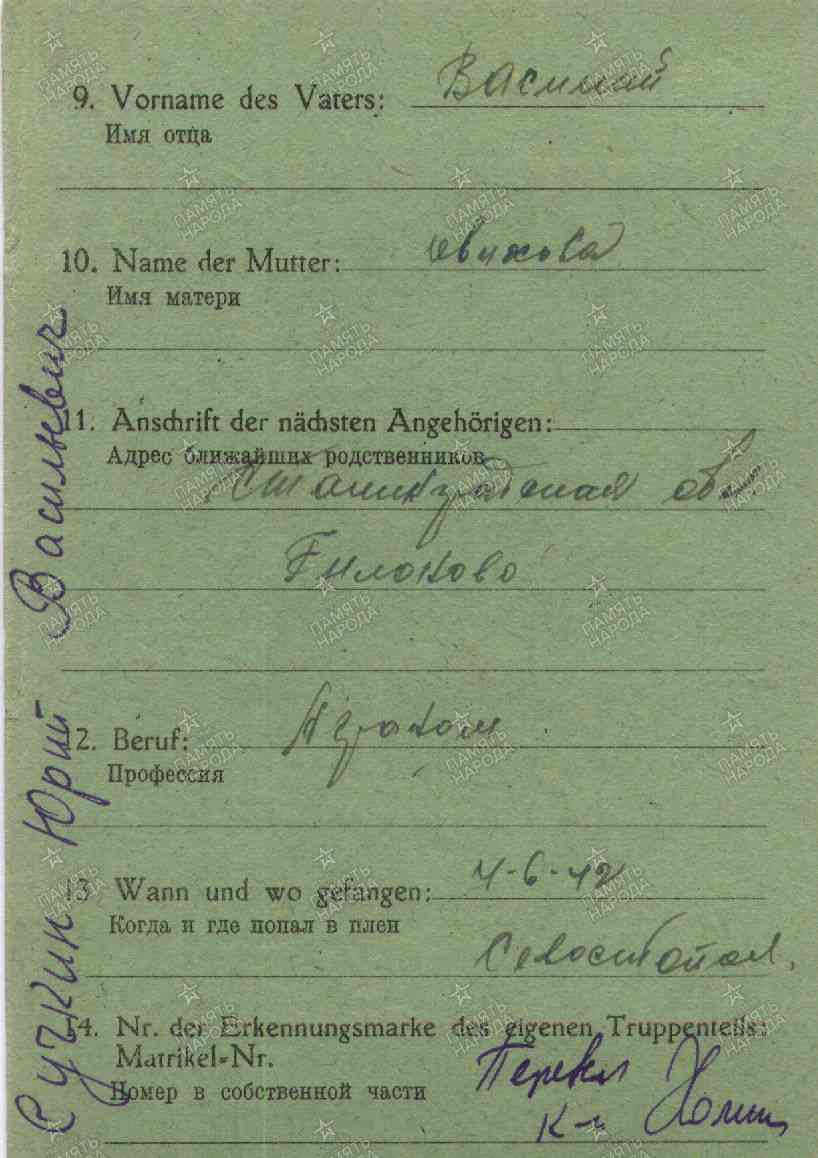 9. Vorname des Vaters: Василий
Имя отца
10. Name der Mutter:
Имя матери
11. Anschrift der nächsten Angehörigen:
Адрес ближайших родственников
Сталинградская обл.
12. Beruf: Агроном
Профессия
13. Wann und wo gefangen: 4-6-42
Когда и где попал в плен
14. Nr. der Erkennungsmarke des eigenen Truppenteils:
Matrikel-Nr.
Номер в собственной части
Перевел
Сучкин Юрий Васильевич
ПАМЯТЬ НАРОДА